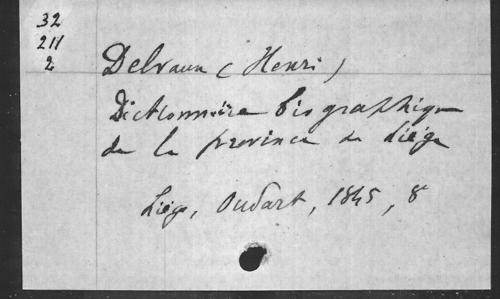 32
211
2
Delvaux (Henri)
Dictionnaire biographique
de la province de Liége
Liége, Oudart, 1845, 8